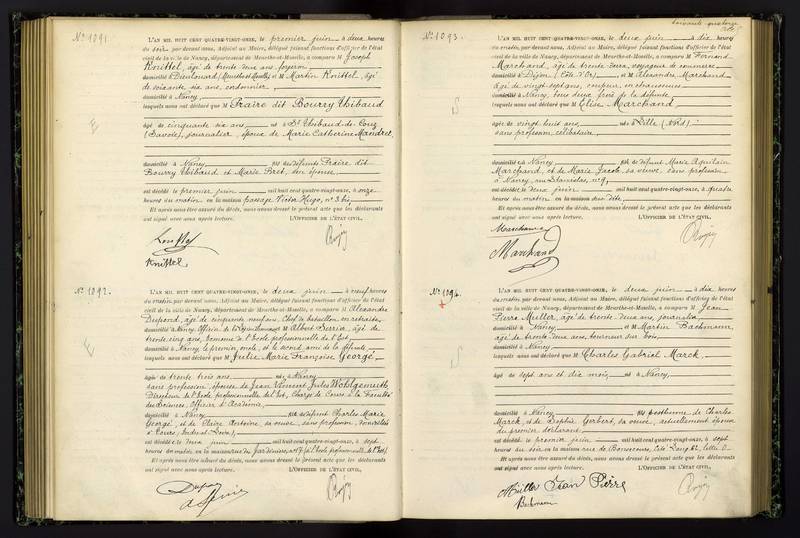 N° 1091.
L'AN MIL HUIT CENT QUATRE-VINGT-ONZE, le premier juin à deux heures
du soir par devant nous, Adjoint au Maire, délégué faisant fonctions d'officier de l'état
civil de la ville de Nancy, département de Meurthe-et-Moselle, a comparu M Joseph
Knittel, âgé de trente deux ans,
domicilié à Dieulouard (Meurthe et Moselle) et Martin Knittel, âgé
de soixante six ans, cordonnier,
domicilié à Nancy
lesquels nous ont déclaré que M Praire dit Bourry Thibaud
âgé de cinquante six ans né à St Thibaud-de-Couz
(Savoie), journalier, époux de Marie Catherine Mandret
domicilié à Nancy fils des défunts Praire dit
Bourry Thibaud et Marie Bret, son épouse,
est décédé le premier juin mil huit cent quatre-vingt-onze, à onze
heures du matin en la maison passage Victor Hugo, n° 3 bis,
Et après nous être assuré du décès, nous avons dressé le présent acte que les déclarants
ont signé avec nous après lecture. L'OFFICIER DE L'ÉTAT CIVIL,
Knittel
Knittel
N° 1092.
L'AN MIL HUIT CENT QUATRE-VINGT-ONZE, le deux juin à neuf heures
du matin, par devant nous, Adjoint au Maire, délégué faisant fonctions d'officier de l'état
civil de la ville de Nancy, département de Meurthe-et-Moselle, a comparu M Alexandre
Dupond, âgé de cinquante neuf ans, Chef de bataillon en retraite,
domicilié à Nancy, Officier de la Légion d'honneur et M Albert Perrin, âgé de
trente cinq ans, économe à l'École professionnelle de l'Est,
domicilié à Nancy, le premier, oncle, et le second, ami de la défunte,
lesquels nous ont déclaré que M Julie Marie Françoise George
âgée de trente trois ans née à Nancy
sans profession, épouse de Jean Vincent Jules Wohlgemuth,
Directeur de l'École professionnelle de l'Est, Chargé de Cours à la Faculté
des Sciences, Officier d'Académie,
domicilié à Nancy fille de défunt Charles Marie
George, et de Claire Antoine, sa veuve, sans profession, domiciliée
à Tours (Indre et Loire),
est décédé le deux juin mil huit cent quatre-vingt-onze, à sept
heures du matin, en la maison rue des Jardiniers, n° 7 (à l'École professionnelle de l'Est)
Et après nous être assuré du décès, nous avons dressé le présent acte que les déclarants
ont signé avec nous après lecture. L'OFFICIER DE L'ÉTAT CIVIL,
soixante quatorze
N° 1093.
L'AN MIL HUIT CENT QUATRE-VINGT-ONZE, le deux juin à dix heures
du matin, par devant nous, Adjoint au Maire, délégué faisant fonctions d'officier de l'état
civil de la ville de Nancy, département de Meurthe-et-Moselle, a comparu M Fernand
Marchand, âgé de trente deux ans, voyageur de commerce,
domicilié à Dijon (Côte d'Or) et M Alexandre Marchand
âgé de vingt sept ans, coupeur en chaussures
domicilié à Nancy, tous deux frères de la défunte,
lesquels nous ont déclaré que M Elise Marchand
âgée de vingt huit ans née à Lille (Nord)
sans profession, célibataire,
domiciliée à Nancy fille de défunt Marie Aquilain
Marchand, et de Marie Jacob, sa veuve, sans profession
à Nancy, rue Stanislas, n° 9,
est décédé le deux juin mil huit cent quatre-vingt-onze, à quatre
heures du matin en la maison sus dite,
Et après nous être assuré du décès, nous avons dressé le présent acte que les déclarants
ont signé avec nous après lecture. L'OFFICIER DE L'ÉTAT CIVIL,
Marchand
Marchand
N° 1094.
L'AN MIL HUIT CENT QUATRE-VINGT-ONZE, le deux juin à dix heures
du matin, par devant nous, Adjoint au Maire, délégué faisant fonctions d'officier de l'état
civil de la ville de Nancy, département de Meurthe-et-Moselle, a comparu M Jean
Pierre Müller, âgé de trente deux ans, journalier
domicilié à Nancy et M Martin Bachmann,
âgé de trente deux ans, tourneur sur bois,
domicilié à Nancy
lesquels nous ont déclaré que M Charles Gabriel Marck,
âgé de sept ans et dix mois, né à Nancy,
domicilié à Nancy fils posthume de Charles
Marck, et de Sophie Gerbert, sa veuve, actuellement épouse
du premier déclarant
est décédé le premier juin mil huit cent quatre-vingt-onze, à sept
heures du soir en la maison rue de Bonsecours, Cité Lang 62, lettre O
Et après nous être assuré du décès, nous avons dressé le présent acte que les déclarants
ont signé avec nous après lecture. L'OFFICIER DE L'ÉTAT CIVIL,
Müller Jean Pierre
Bachmann